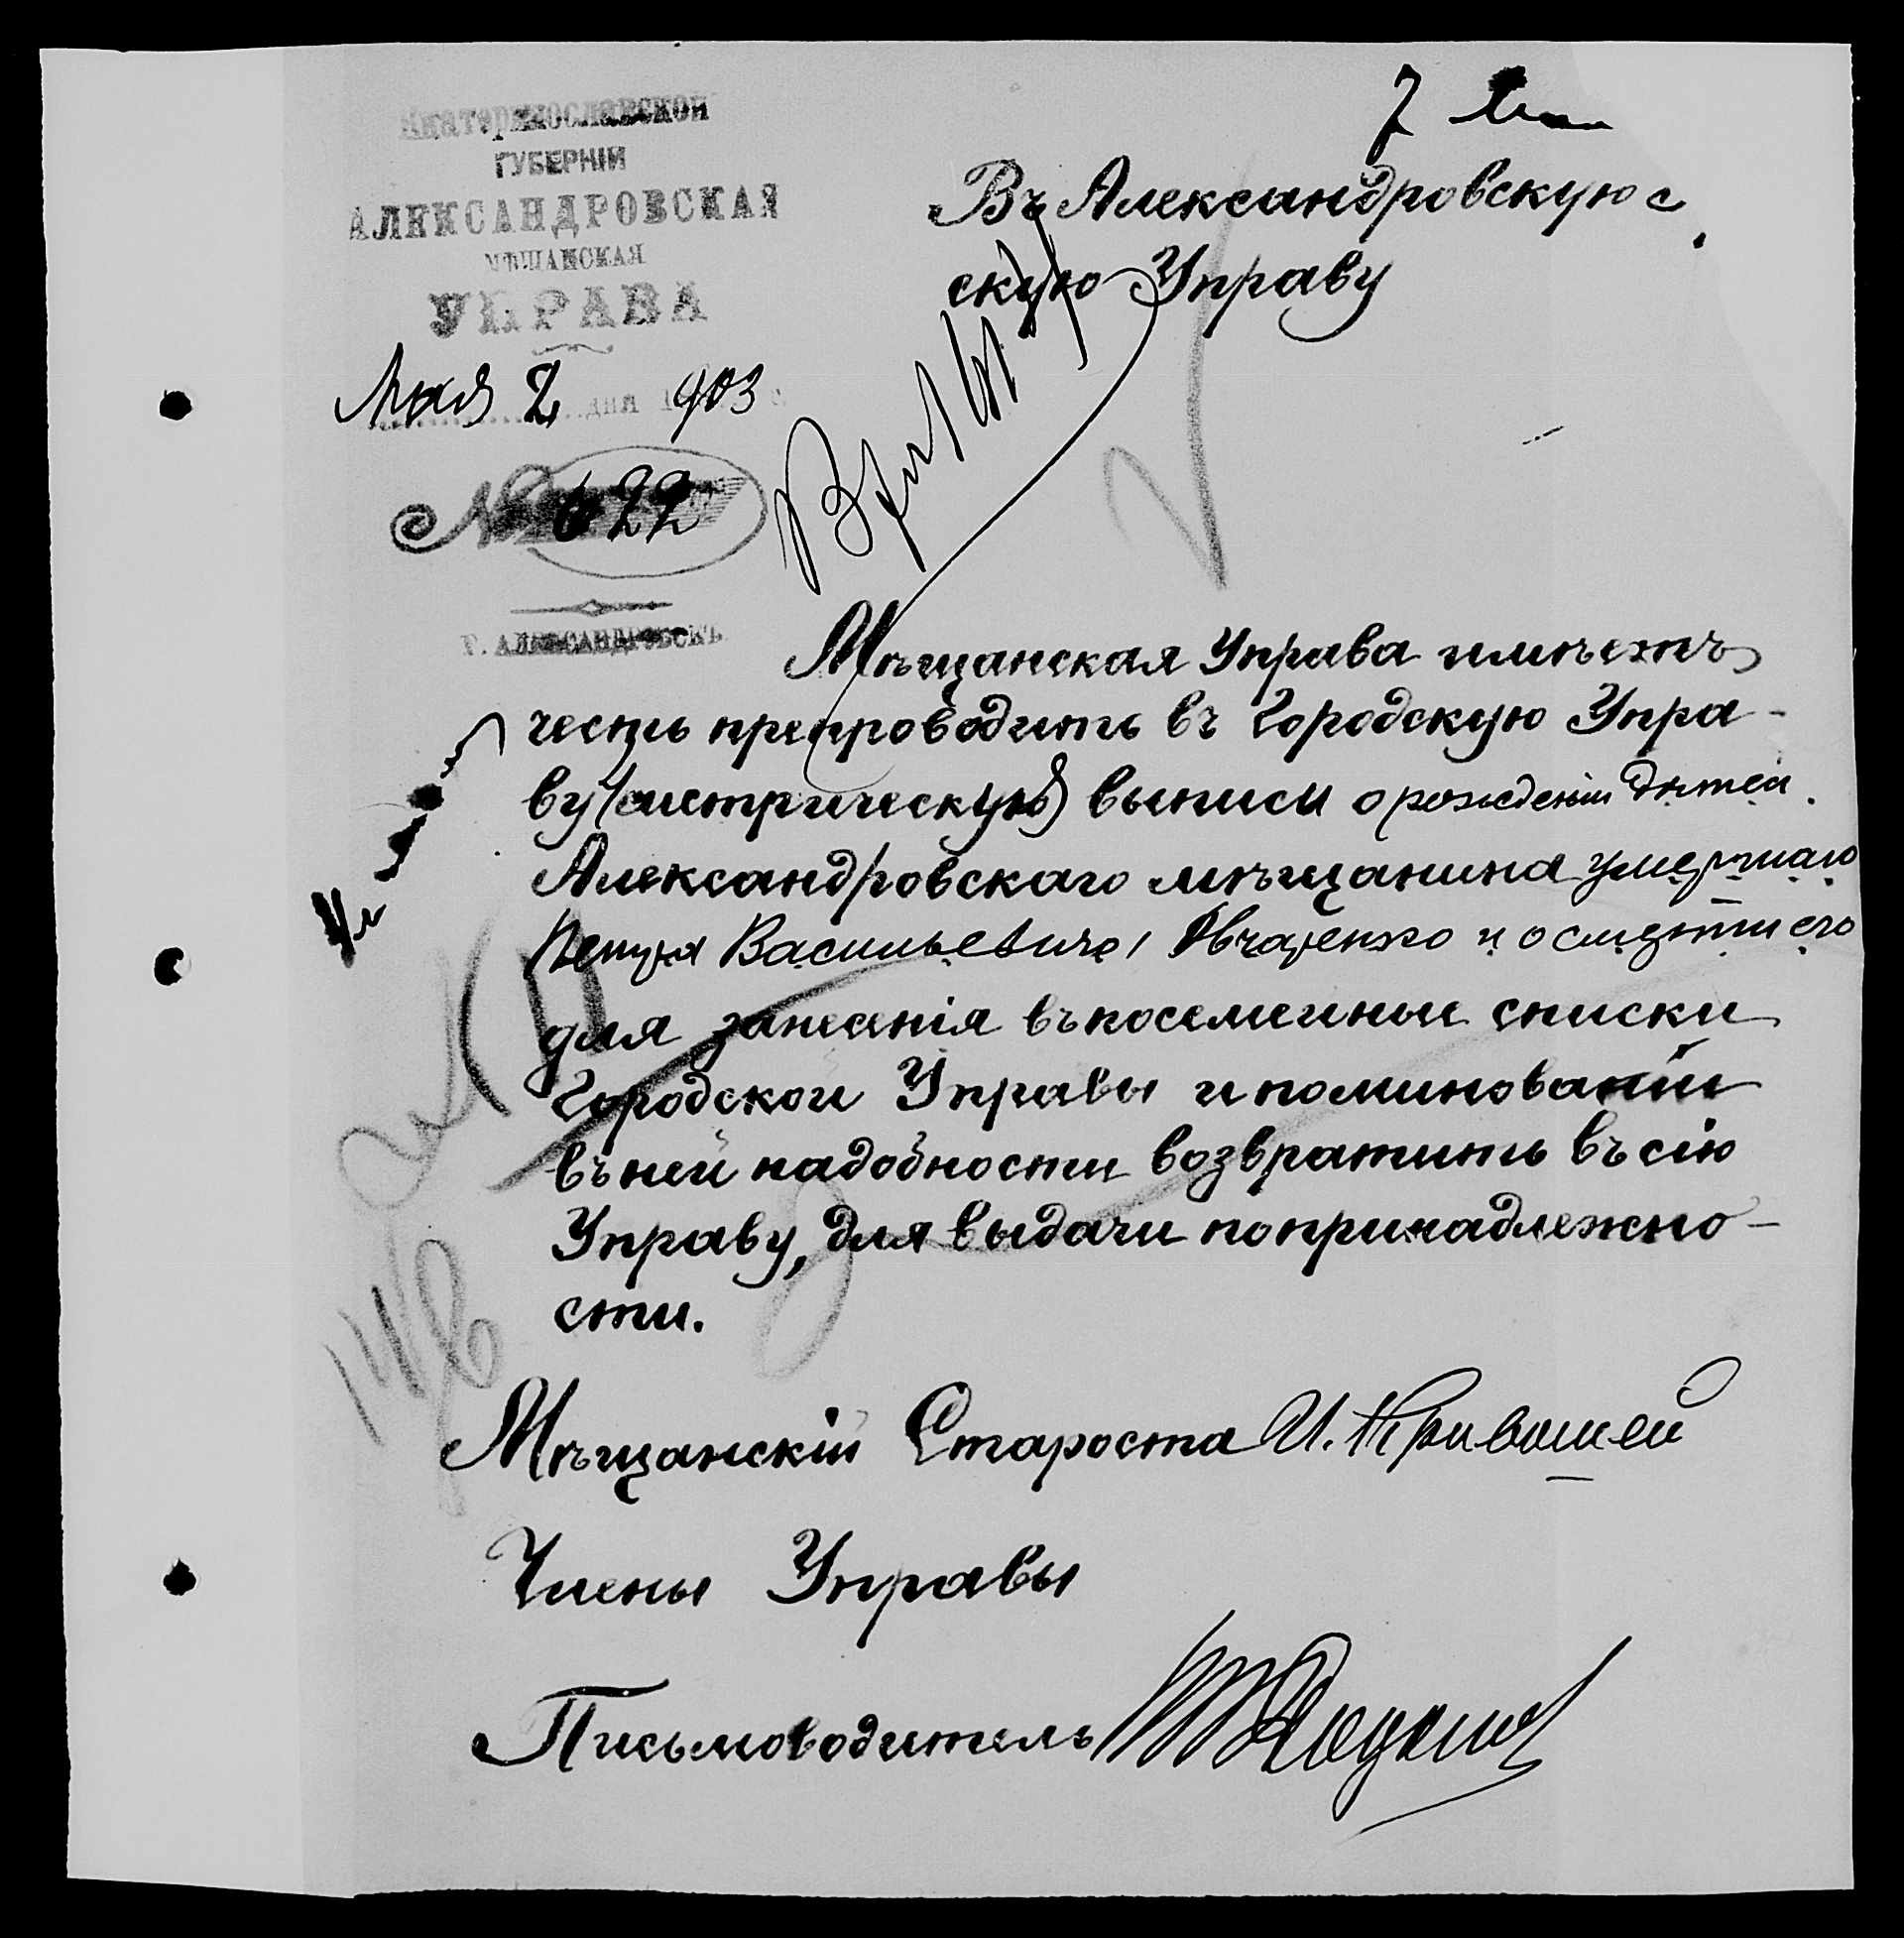 Екатеринославской
ГУБЕРНІИ
АЛЕКСАНДРОВСКАЯ
МѢЩАНСКАЯ
УПРАВА
Мая 2 дня 1903
№ 622
Г. АЛЕКСАНДРОВСКЪ
7
Въ Александровскую
скую Управу
Мѣщанская Управа имѣетъ
честь препроводить въ Городскую Упра-
ву метрическую выписи о рожденіи дѣтей
Александровскаго мѣщанина умершаго
Петра Васильевича Овчаренко и о смерти его
для занесенія въ посемейные списки
Городской Управы и по миновании
въ ней надобности возвратить въ сію
Управу, для выдачи по принадлежно-
сти.
Мѣщанскій Староста И.
Члены Управы
Письмоводитель